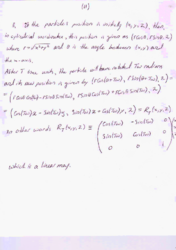 (a)
2. If the particle's position is initially (x, y, z), then,
in cylindrical coordinates, this position is given as (r cosθ, r sinθ, z)
where r = √x²+y² and θ is the angle between (x, y) and
the x-axis.
After T time units, the particle will have rotated Tω radians
and its new position is given by (r cos(θ+Tω), r sin(θ+Tω), z)
= (cos(Tω)x - sin(Tω)y, sin(Tω)x + cos(Tω)y, z) = R_T(x, y, z)
In other words R_T(x, y, z) = ( cos(Tω) -sin(Tω) 0
sin(Tω) cos(Tω) 0
0 0 1 )
which is a linear map.